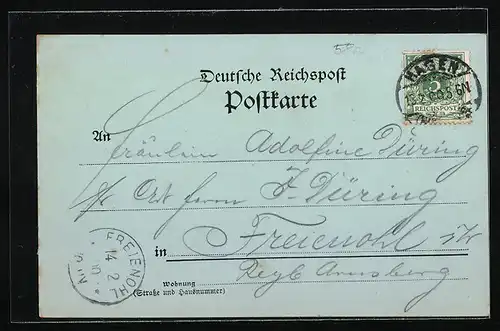 Deutsche Reichspost
Postkarte
HAGEN
5
REICHSPOST
An
Fräulein Adolfine Düring
Herrn J. Düring
in Freienohl i/W
Wohnung
(Straße und Hausnummer)
Rezb Arnsberg
FREIENOHL
14 2